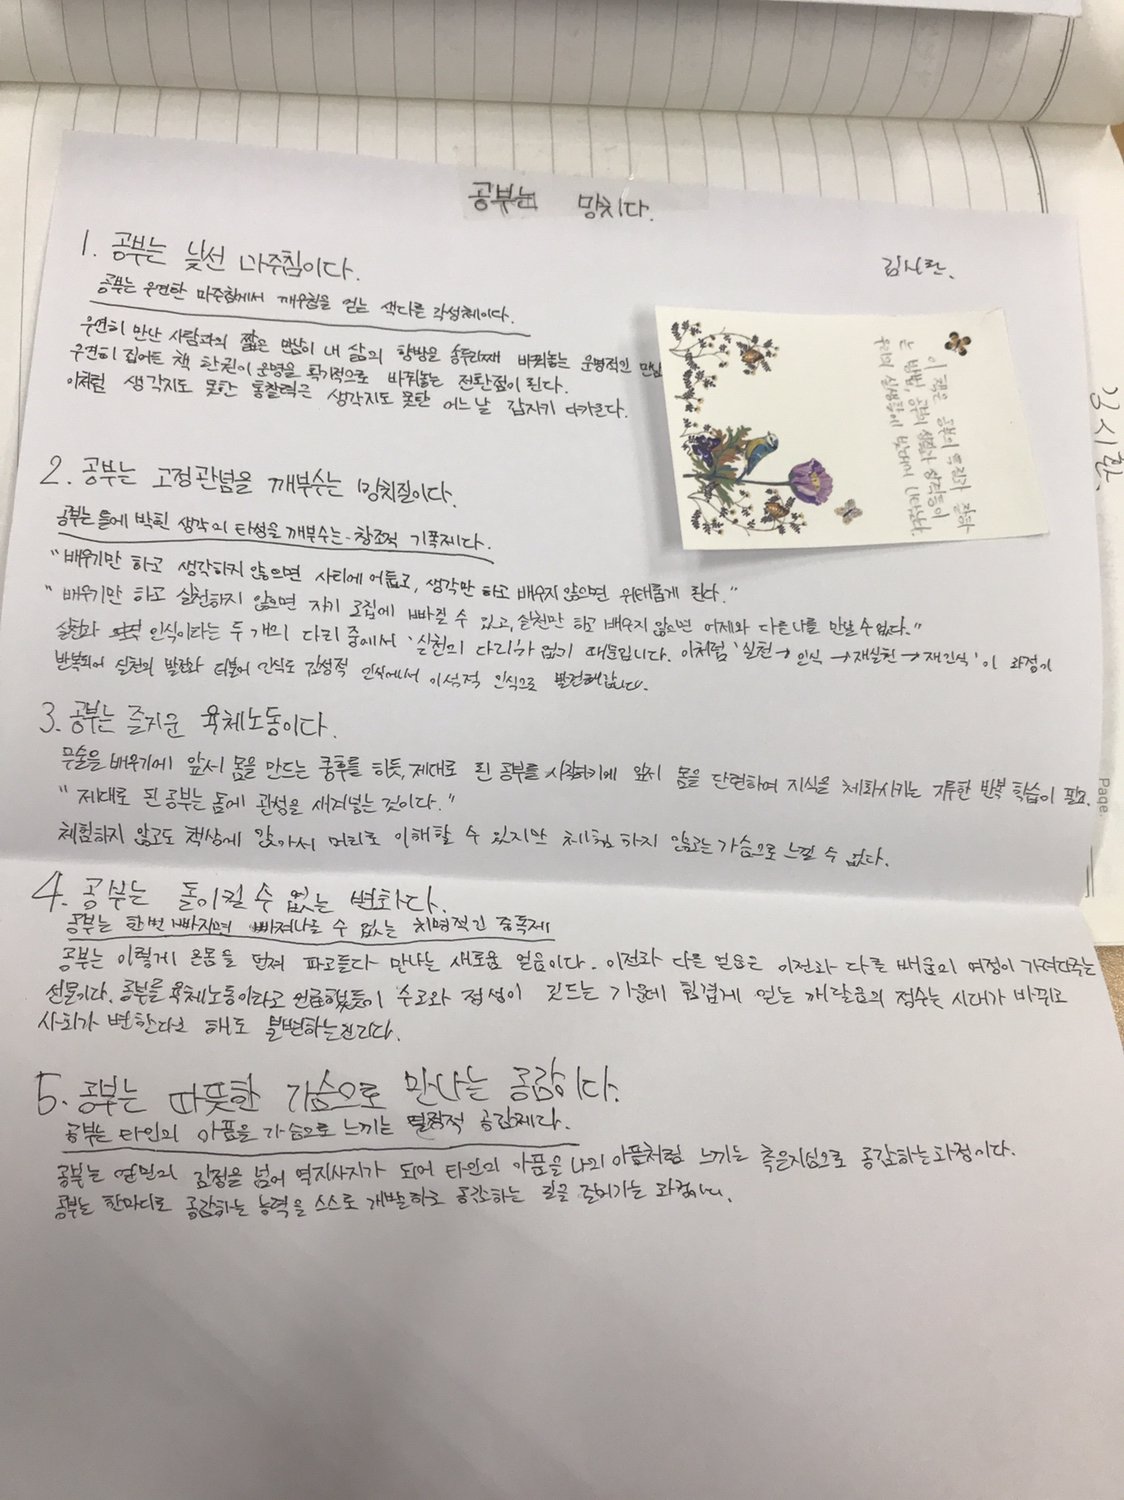 공부는 망치다.
김시환.
1. 공부는 낯선 마주침이다.
공부는 우연한 마주침에서 깨우침을 얻는 색다른 각성체이다.
우연히 만난 사람과의 짧은 만남이 내 삶의 향방을 송두리째 바꿔놓는 운명적인 만남
우연히 집어든 책 한권이 운명을 획기적으로 바꿔놓는 전환점이 된다.
이처럼 생각지도 못한 통찰력은 생각지도 못한 어느 날 갑자기 다가온다.
이 책은 공부의 특징과 잘하
는 방법, 공부의 생활과 창작 등이
우리의 실생활에 빗대어서 나타난다
김시환
2. 공부는 고정관념을 깨부수는 망치질이다.
공부는 틀에 박힌 생각의 타성을 깨부수는 창조적 기폭제다.
"배우기만 하고 생각하지 않으면 사리에 어둡고, 생각만 하고 배우지 않으면 위태롭게 된다."
"배우기만 하고 실천하지 않으면 자기 모집에 빠질 수 있고, 실천만 하고 배우지 않으면 어제와 다른 나를 만날 수 없다."
실천과 인식이라는 두 개의 다리 중에서 '실천의 다리'가 없기 때문입니다. 이처럼 '실천 → 인식 → 재실천 → 재인식'이 과정이
반복되어 실천의 발전과 더불어 인식도 감성적 인식에서 이성적 인식으로 발전해갑니다.
3. 공부는 즐거운 육체노동이다.
무술을 배우기에 앞서 몸을 만드는 쿵후를 하듯, 제대로 된 공부를 시작하기에 앞서 몸을 단련하여 지식을 체화시키는 지루한 반복 학습이 필요.
"제대로 된 공부는 몸에 관성을 새겨넣는 것이다."
체험하지 않고도 책상에 앉아서 머리로 이해할 수 있지만 체험하지 않고는 가슴으로 느낄 수 없다.
Page.
4. 공부는 돌이킬 수 없는 변화다.
공부는 한번 빠지면 빠져나올 수 없는 치명적인 중독제
공부는 이렇게 온몸을 던져 파고들다 만나는 새로움 얻음이다. 이전과 다른 얻음은 이전과 다른 배움의 여정이 가져다주는
선물이다. 공부를 육체노동이라고 언급했듯이 수고와 정성이 깃드는 가운데 힘겹게 얻는 깨달음의 정수는 시대가 바뀌고
사회가 변한다고 해도 불변하는진리다.
5. 공부는 따뜻한 가슴으로 만나는 공감이다.
공부는 타인의 아픔을 가슴으로 느끼는 열정적 공감제다.
공부는 연민의 감정을 넘어 역지사지가 되어 타인의 아픔을 나의 아픔처럼 느끼는 측은지심으로 공감하는 과정이다.
공부는 한마디로 공감하는 능력을 스스로 개발하고 공감하는 힘을 길러가는 과정이다.